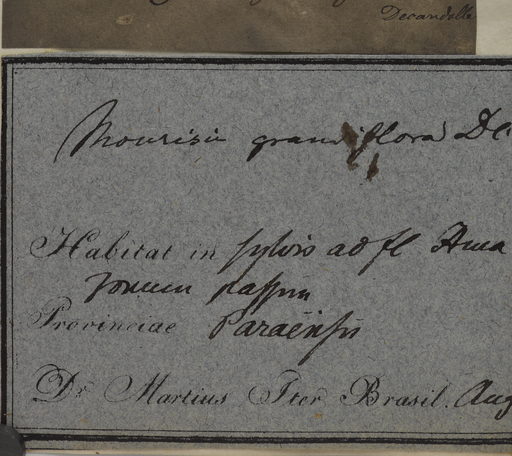 Decandolle
Mouriria grandiflora DC
Habitat in sylvis ad fl Ama
zonum passim
Provinciae Paraënsis
Dr. Martius Iter Brasil. Aug